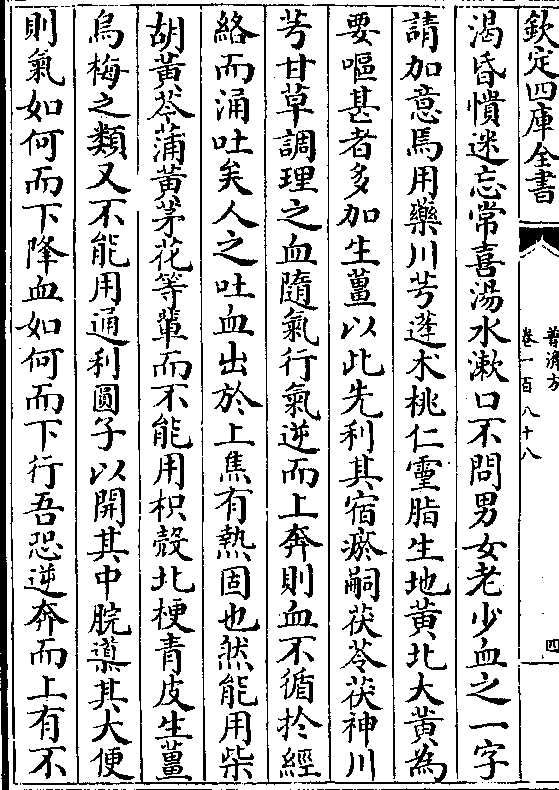 欽定四庫全書
普濟方
卷一百八十八
四
渴昏憒迷忘常喜湯水漱口不問男女老少血之一字
請加意焉用藥川芎蓬术桃仁靈脂生地黄北大黄為
要嘔甚者多加生薑以此先利其宿瘀嗣茯苓茯神川
芎甘草調理之血隨氣行氣逆而上奔則血不循於經
絡而涌吐矣人之吐血出於上焦有熱固也然能用柴
胡黄芩蒲黄茅花等輩而不能用枳殼北梗青皮生薑
烏梅之類又不能用通利圓子以開其中脘䆃其大便
則氣如何而下降血如何而下行吾恐逆奔而上有不